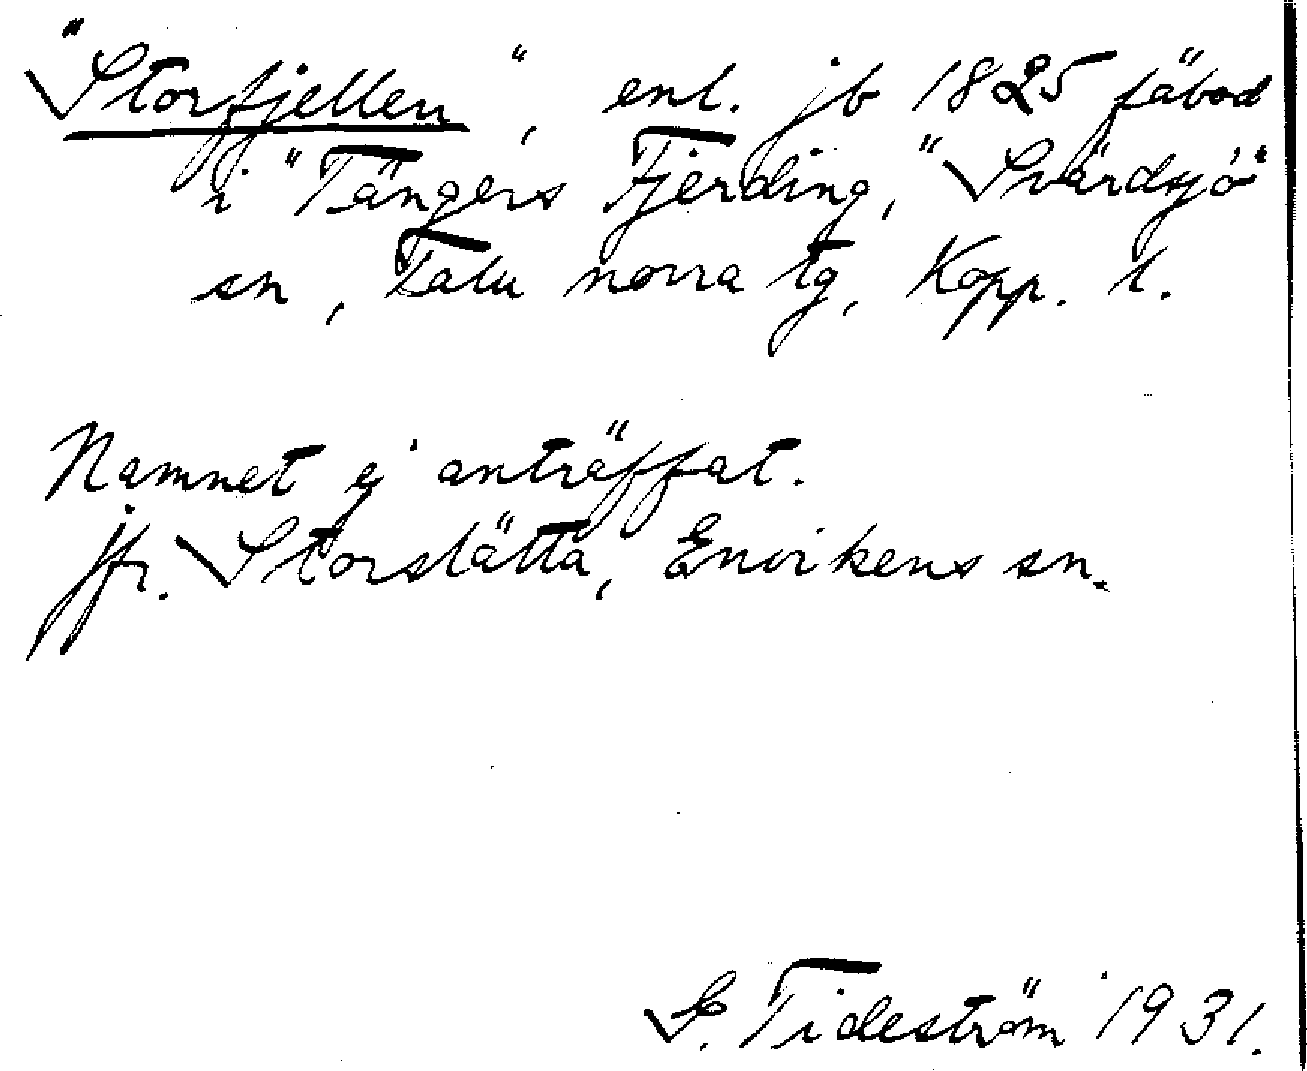 "Storfjellen", enl. jb 1825 fäbod
i "Tängers Fjerding," Svärdsjö
sn, Falu norra tg, Kopp. l.
Namnet ej anträffat.
Jfr. Storslätta, Envikens sn.
G. Tideström 1931.